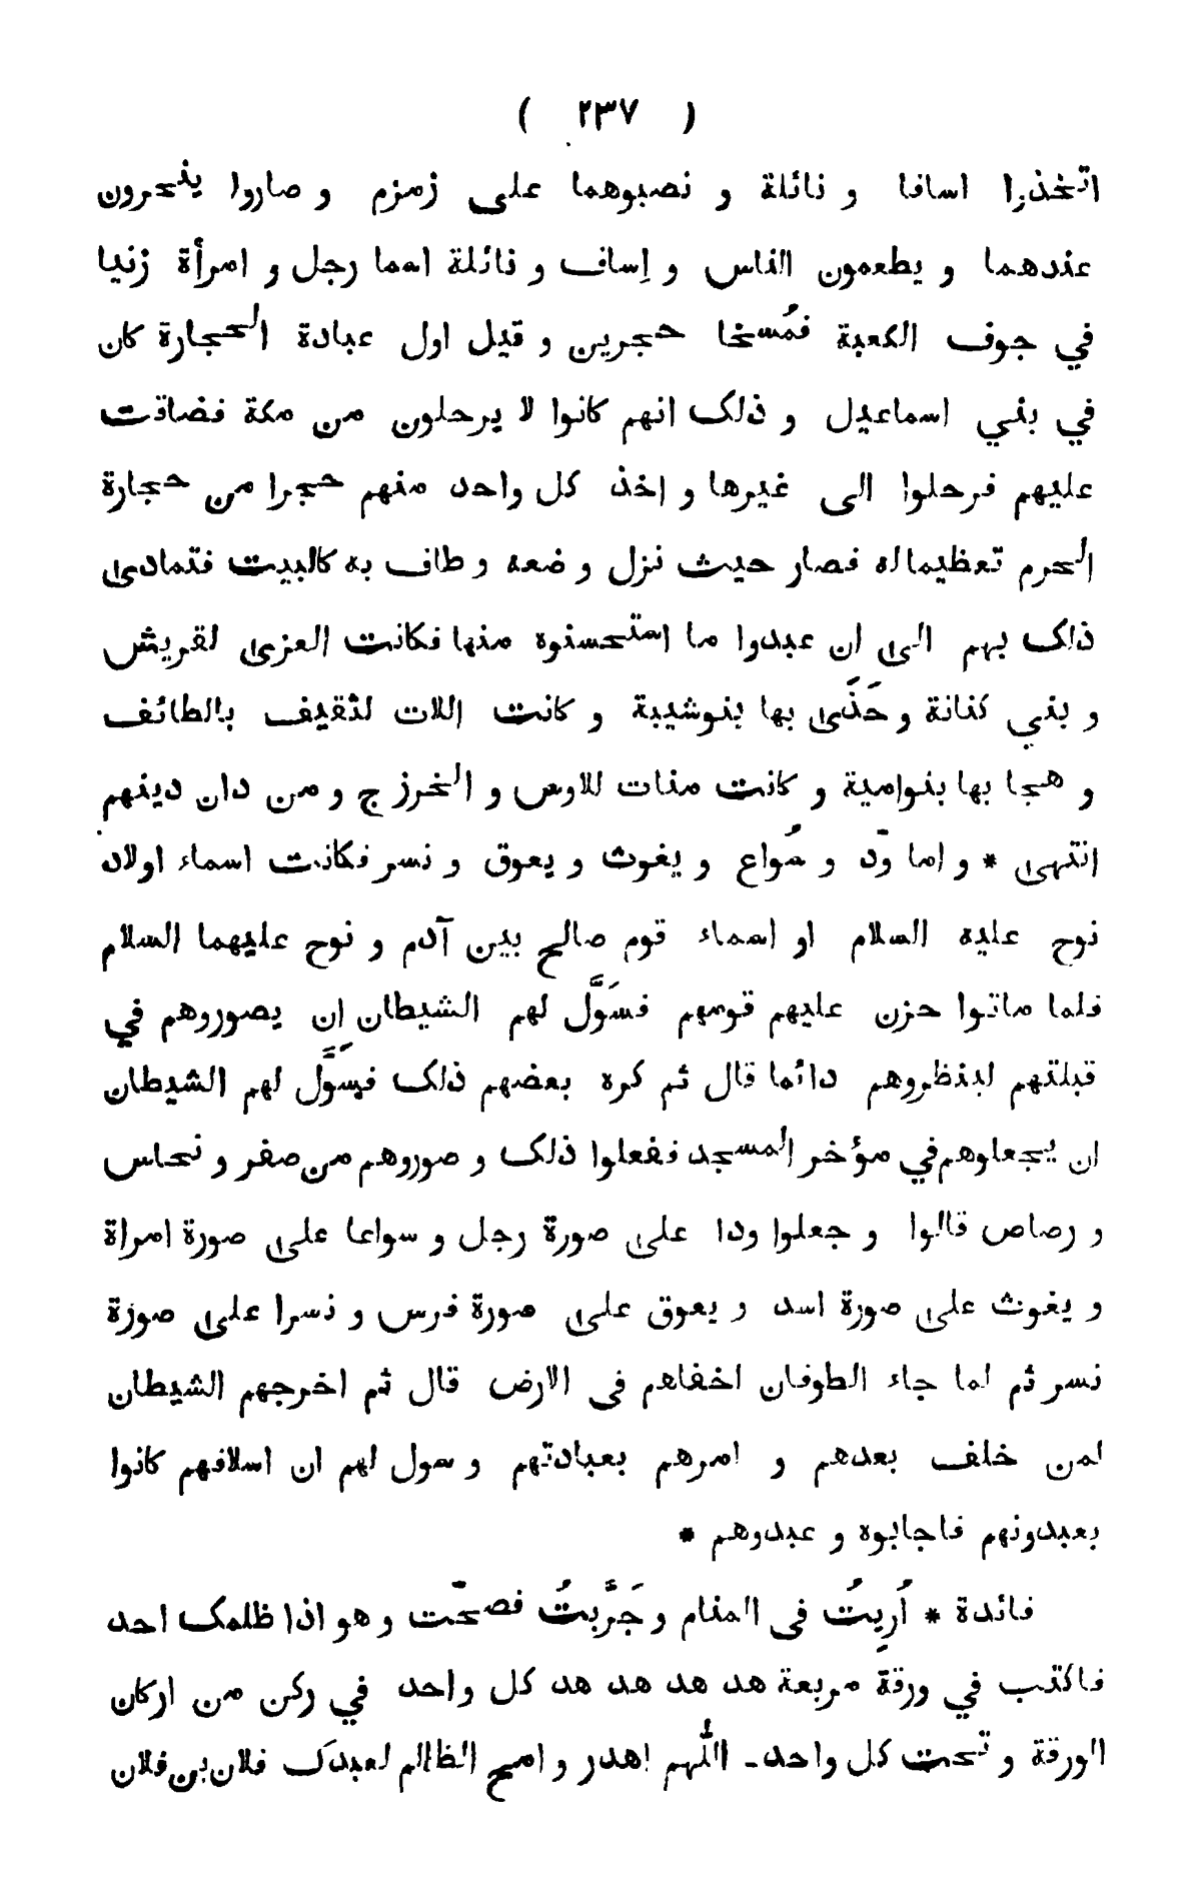 ( ٢٣٧ )
اتخذوا اسافا و نائلة و نصبوهما على زمزم و صاروا ينحرون
عندهما و يطعمون الناس و إساف و نائلة اسما رجل و امرأة زنيا
في جوف الكعبة فمُسخا حجرين و قيل اول عبادة الحجارة كان
في بني اسماعيل و ذلك انهم كانوا لا يرحلون من مكة فضاقت
عليهم فرحلوا الى غيرها و اخذ كل واحد منهم حجرا من حجارة
الحرم تعظيما له فصار حيث نزل و ضعه و طاف به كالبيت فتمادى
ذلك بهم الى ان عبدوا ما استحسنوه منها فكانت العزى لقريش
و بني كنانة و حَذَى بها بنوشيبة و كانت اللات لثقيف بالطائف
و هجا بها بنوامية و كانت منات للاوس و الخزرج و من دان دينهم
انتهى * و اما ودّ و سُواع و يغوث و يعوق و نسر فكانت اسماء اولاد
نوح عليه السلام او اسماء قوم صالح بين آدم و نوح عليهما السلام
فلما ماتوا حزن عليهم قومهم فسَوَّل لهم الشيطان ان يصوروهم في
قبلتهم لينظروهم دائما قال ثم كره بعضهم ذلك فسَوَّل لهم الشيطان
ان يجعلوهم في مؤخر المسجد ففعلوا ذلك و صوروهم من صفر و نحاس
و رصاص قالوا و جعلوا ودا على صورة رجل و سواعا على صورة امراة
و يغوث على صورة اسد و يعوق على صورة فرس و نسرا على صورة
نسر ثم لما جاء الطوفان اخفاهم فى الارض قال ثم اخرجهم الشيطان
لمن خلف بعدهم و امرهم بعبادتهم و سول لهم ان اسلافهم كانوا
يعبدونهم فاجابوه و عبدوهم *
فائدة * اُرِيتُ فى المنام و جَرَّبتُ فصحّت و هو اذا ظلمك احد
فاكتب في ورقة مربعة هد هد هد هد كل واحد في ركن من اركان
الورقة و تحت كل واحد ـ اللهم اهدر و امح الظالم لعبدك فلان بن فلان